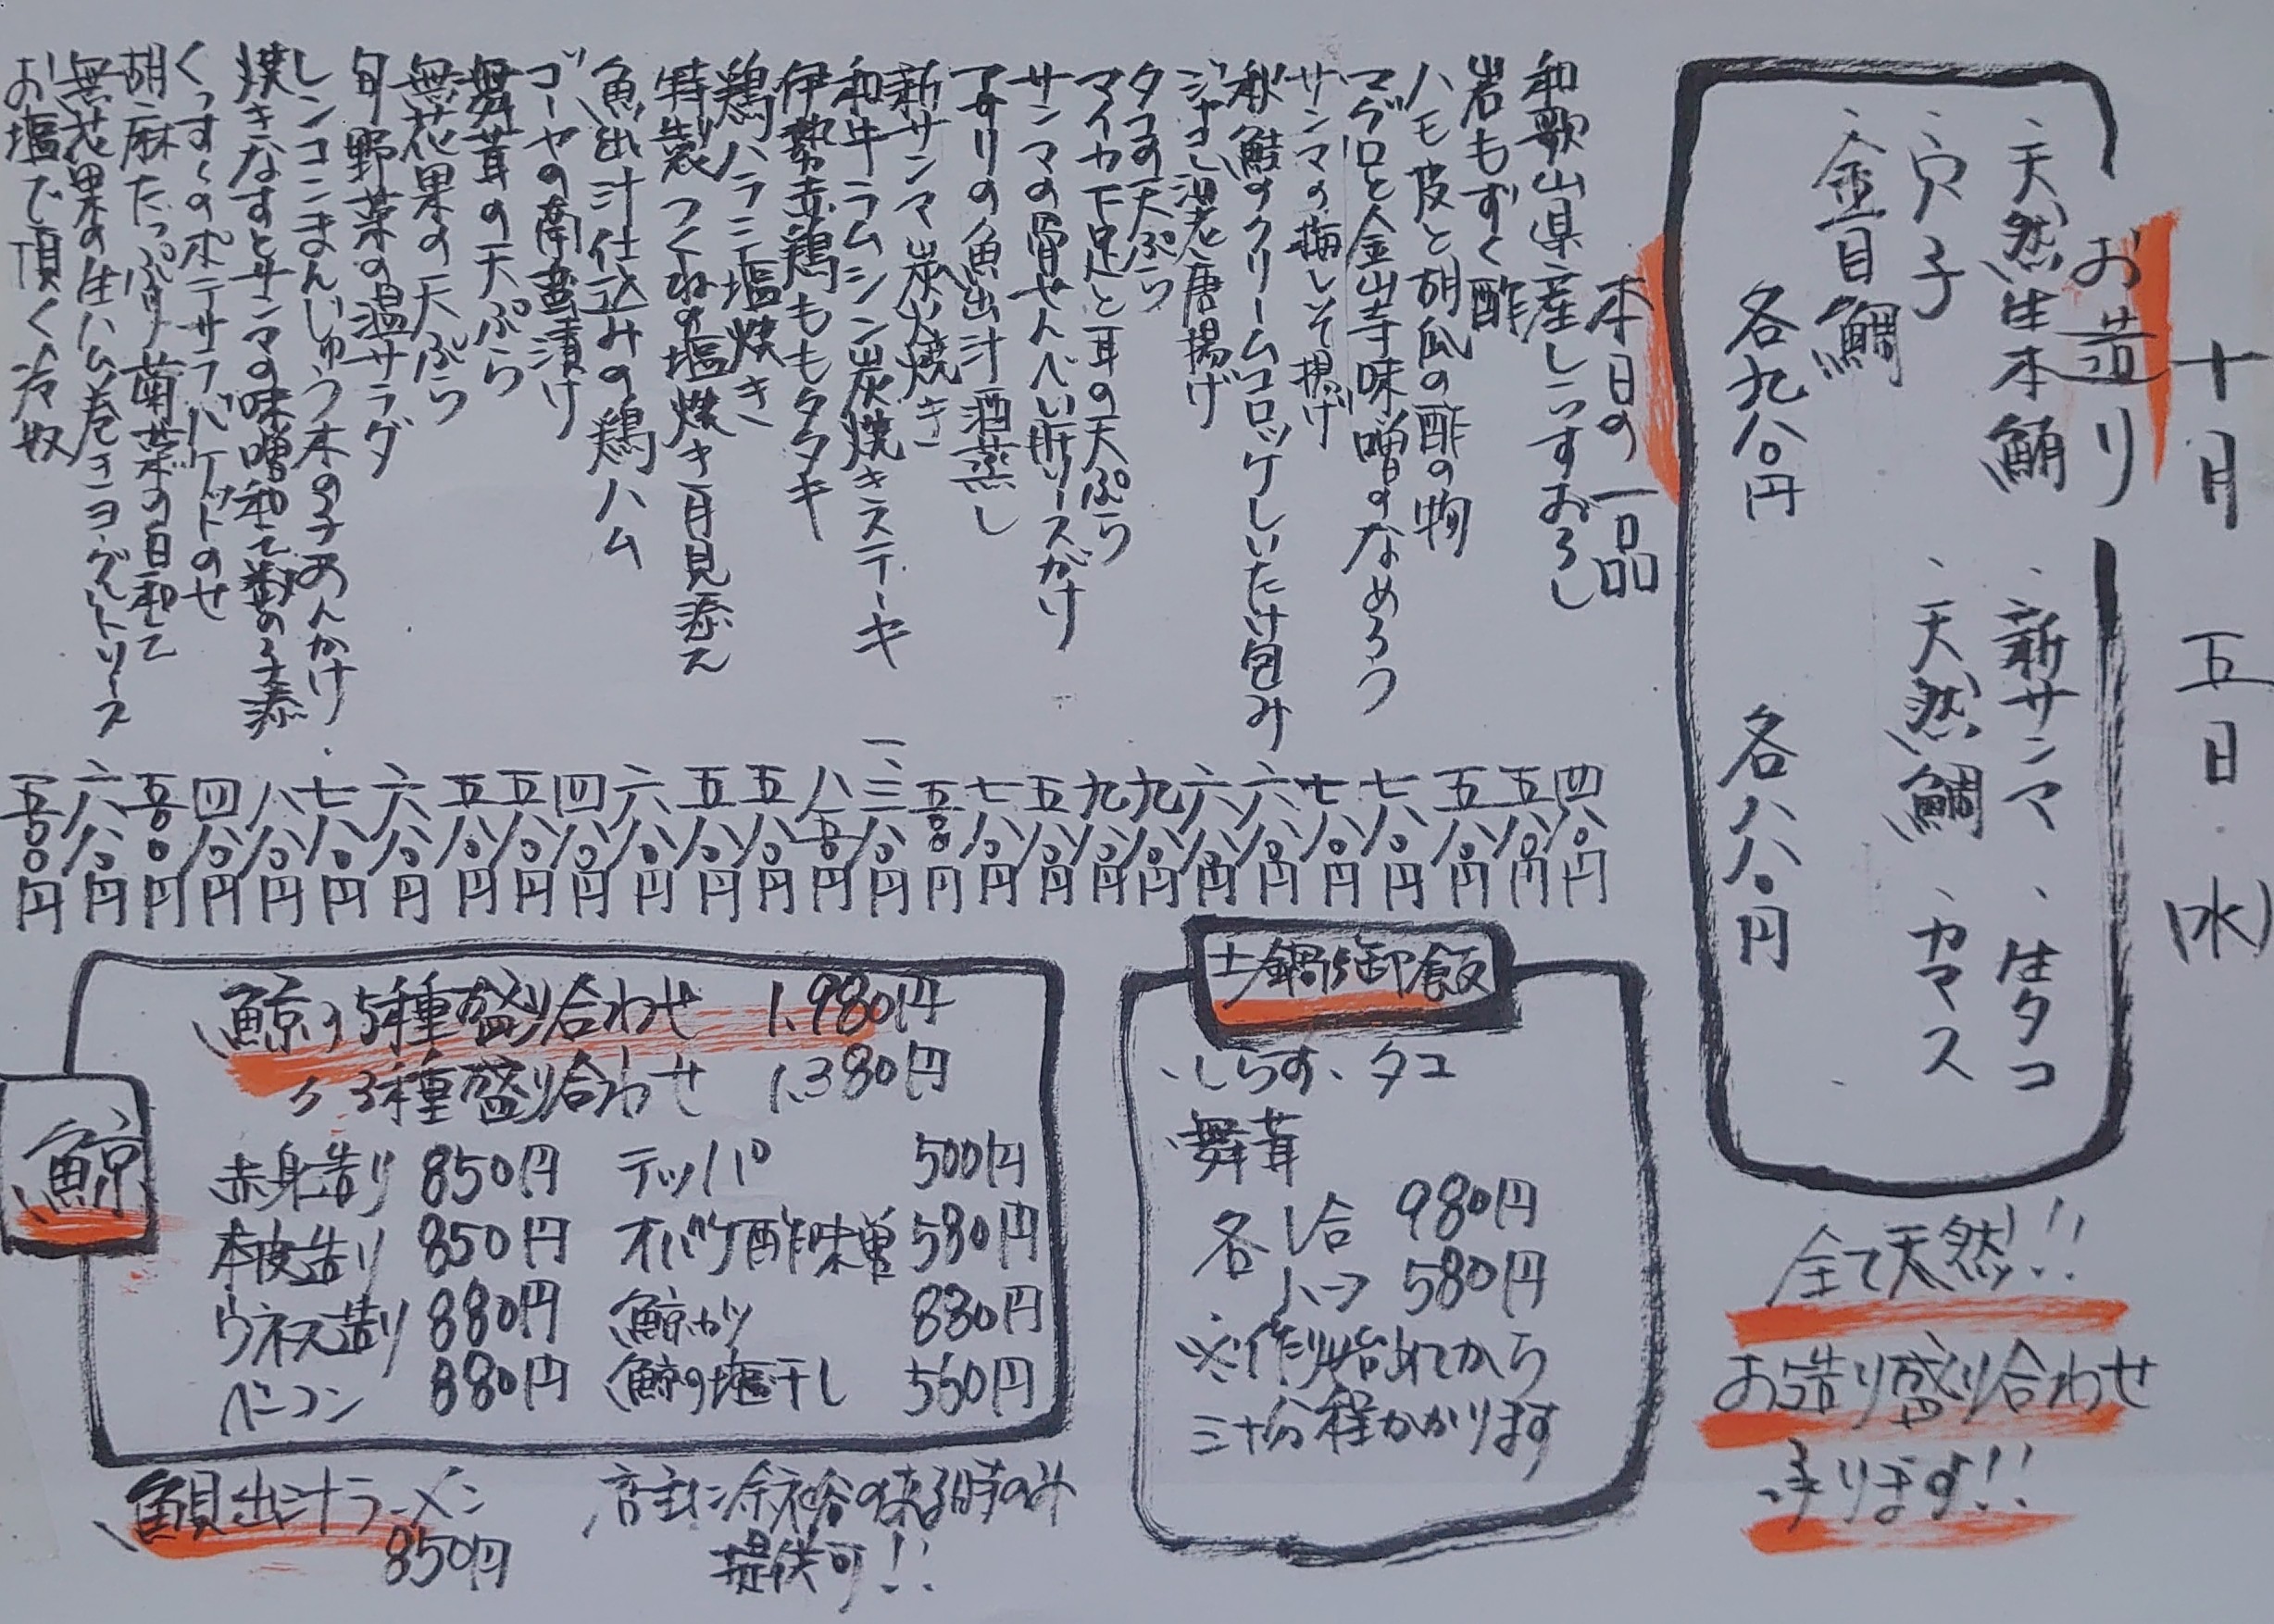 十月 五日 (水)
お造り
、天然生本鮪 、新サンマ 、生タコ
、穴子 、天然鯛 、カマス
、金目鯛
各九八〇円 各八八〇円
全て天然!!
お造り盛り合わせ
承ります!!
本日の一品
和歌山県産しらすおろし 四八〇円
岩もずく酢 五八〇円
ハモ皮と胡瓜の酢の物 五八〇円
マグロと金山寺味噌のなめろう 七八〇円
サンマの梅しそ揚げ 七八〇円
秋鮭のクリームコロッケしいたけ包み 六八〇円
ジャコし海老唐揚げ 六八〇円
タコの天ぷら 九八〇円
マイカ下足と耳の天ぷら 九八〇円
サンマの骨せんべい肝ソースがけ 五八〇円
アサリの魚出汁酒蒸し 七八〇円
新サンマ炭火焼き 五〇〇円
和牛ラムシン炭焼きステーキ 一、三八〇円
伊勢赤鶏ももタタキ 八五〇円
鶏ハラミ塩焼き 五八〇円
特製つくねの塩焼き月見添え 五八〇円
魚出汁仕込みの鶏ハム 六八〇円
ゴーヤの南蛮漬け 四八〇円
舞茸の天ぷら 五八〇円
無花果の天ぷら 五八〇円
旬野菜の温サラダ 六八〇円
レンコンまんじゅう木の子あんかけ 七八〇円
焼きなすとサンマの味噌和て茗の子添 八八〇円
くっすくのポテサラバケットのせ 四八〇円
胡麻たっぷり菊菜の白和て 五〇〇円
無花果の生ハム巻きヨーグルトソース 六八〇円
お塩で頂く冷奴 五〇〇円
土鍋御飯
、しらす、タコ
、舞茸
各 1合 980円
ハーフ 580円
※作り始めてから
三十分程かかります
鯨
鯨の5種盛り合わせ 1.980円
〃 3種盛り合わせ 1.380円
赤身造り 850円 テッパ 500円
本皮造り 850円 オバケ酢味噌 580円
ウネス造り 880円 鯨カツ 880円
ベーコン 880円 鯨の塩干し 550円
魚貝出汁ラーメン
850円
店主に余裕の来る時のみ
提供可!!